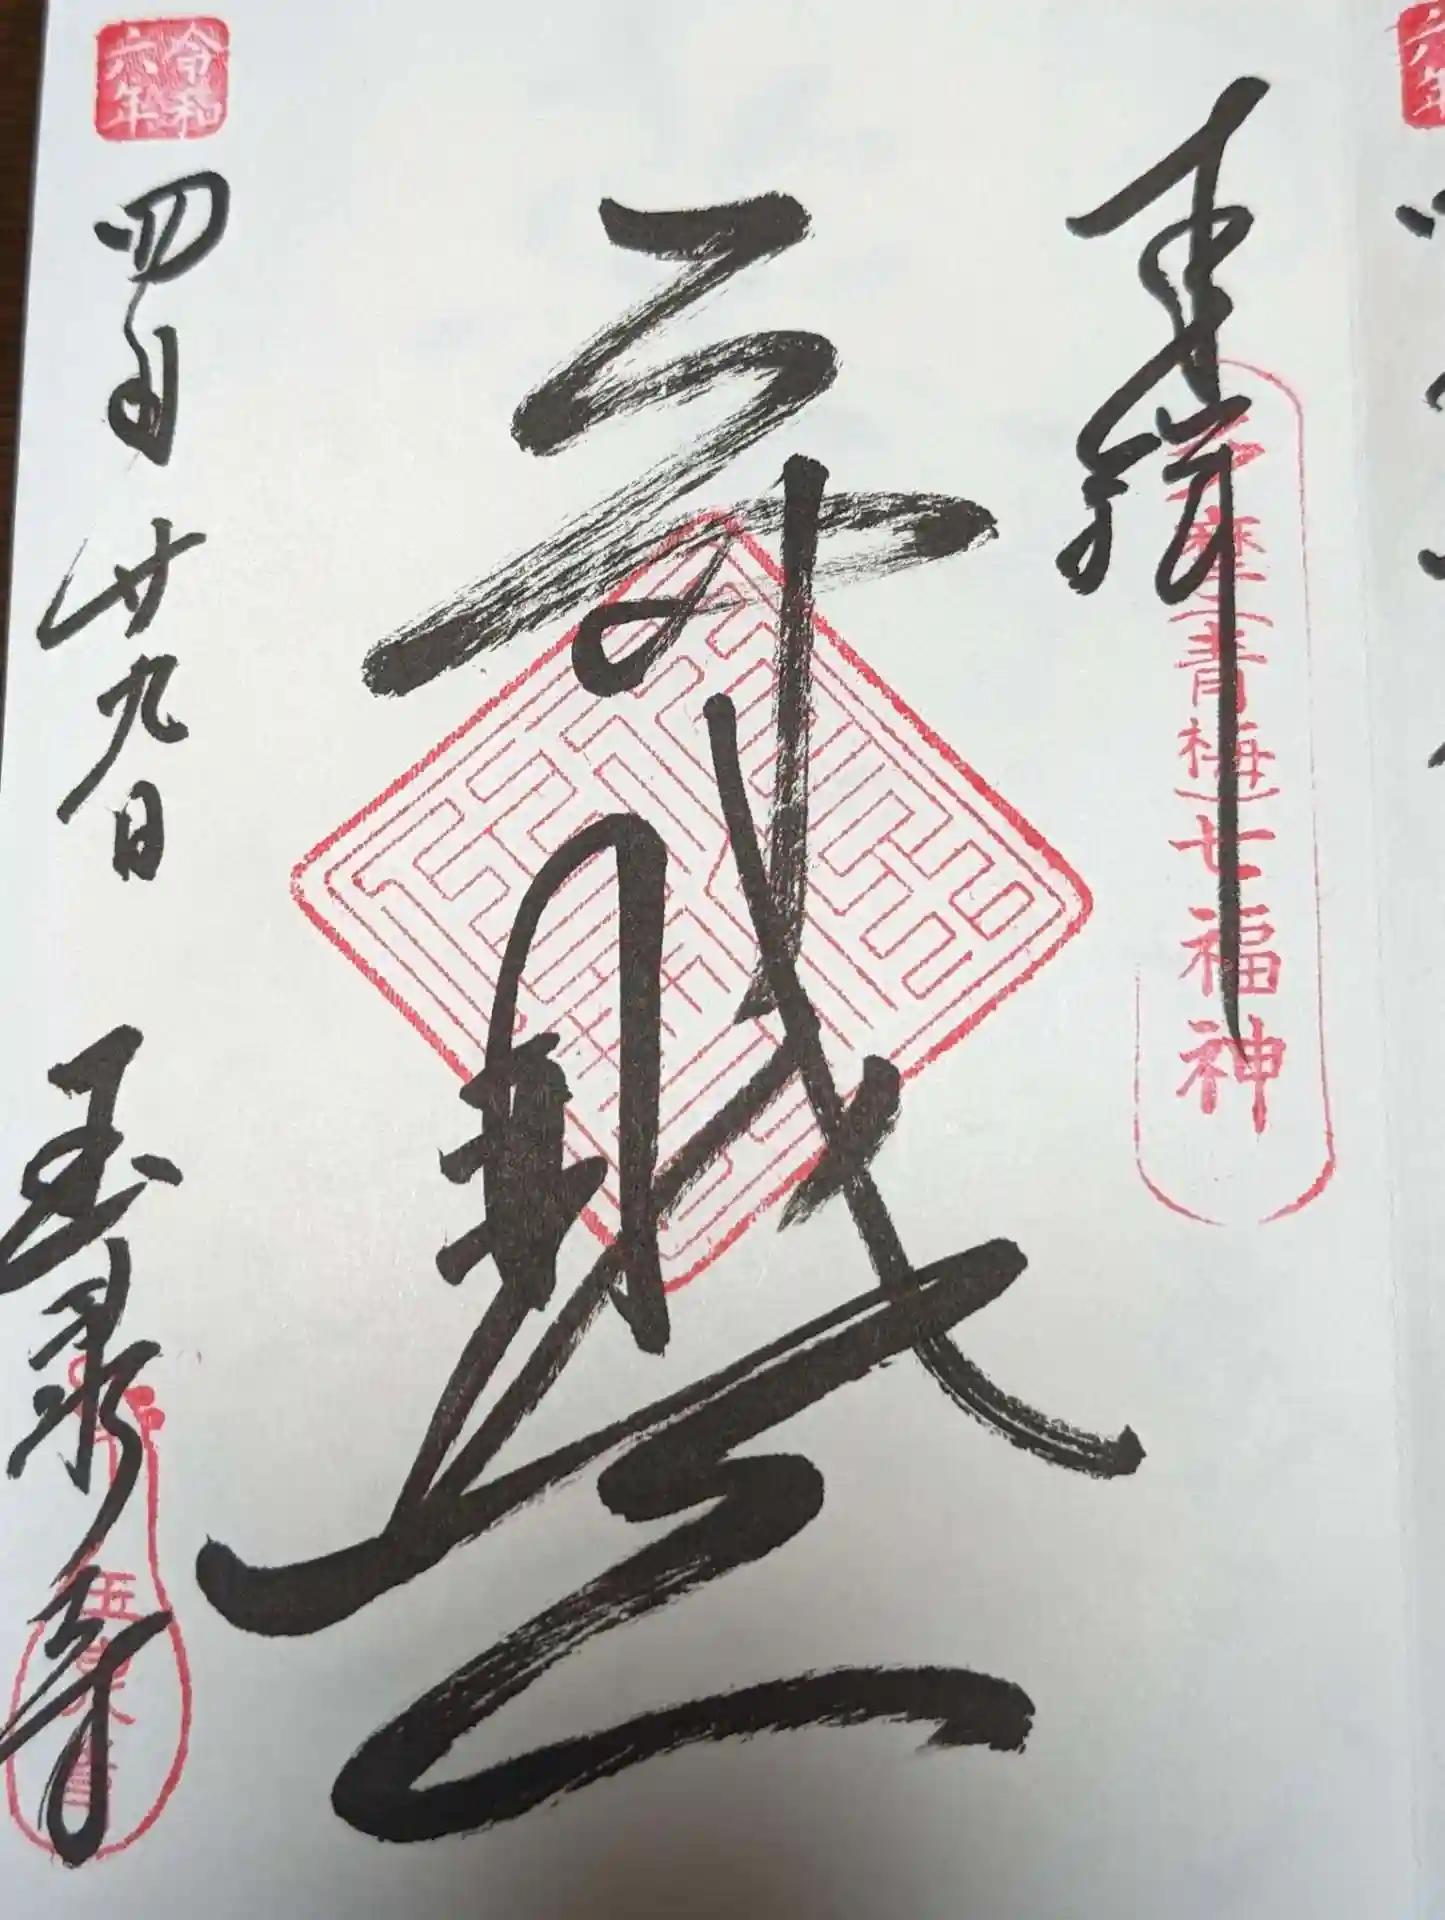 六年
奉拝
多摩(青梅)七福神
弁財天
令和六年
四月廿九日
玉泉寺